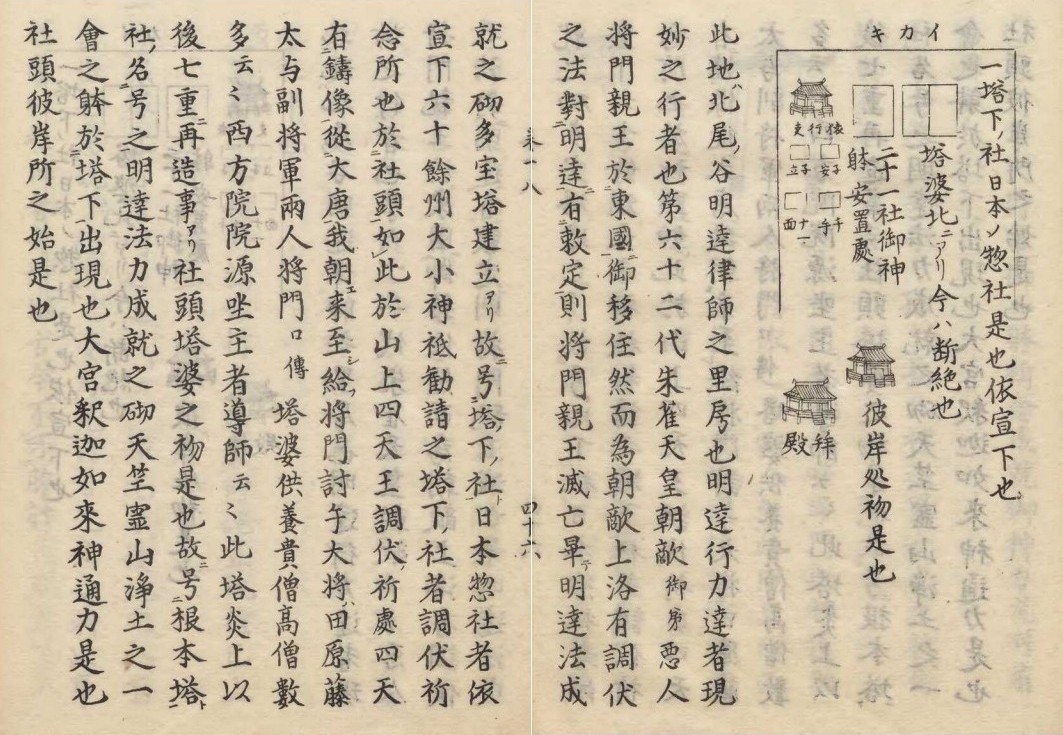 一塔下ノ社日本ノ惣社是也依宣下也
イカキ
塔婆北ニアリ今ハ断絶也
二十一社御神
躰安置處
依行叓
子安
子立
千手
十一面
彼岸処初是也
拝殿
此地ハ北尾ノ谷明達律師之里房也明達行力達者現
妙之行者也第六十二代朱雀天皇朝敵御弟悪人
将門親王於東國ニ御移住然而為朝敵上洛有調伏
之法對明達ニ有敕定則将門親王滅亡畢明達法成
就之砌多宝塔建立アリ故ニ号塔ノ下ノ社ト日本惣社者依
宣下六十餘州大小神祇勧請之塔下社者調伏祈
念所也於社頭如此於山上四天王調伏祈處四天
右鑄像從大唐我朝エ来至シ給フ将門討午大将ハ田原藤
太与副将軍兩人将門口傳塔婆供養貴僧高僧數
多云々西方院院源坐主者導師云々此塔炎上以
後七重ニ再造事アリ社頭塔婆之初是也故ニ号根本塔ト
社ノ名号之明達法力成就之砌天竺霊山淨土之一
會之躰於塔下ニ出現也大宮釈迦如來神通力是也
社頭彼岸所之始是也
巻一八
四十六